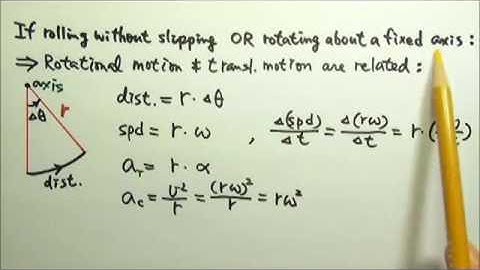 If rolling without slipping OR rotating about a fixed axis :
⇒ Rotational motion & transl. motion are related :
axis
r
Δθ
dist.
dist. = r · Δθ
spd = r · ω , Δ(spd)/Δt = Δ(rω)/Δt = r ·
a_T = r · α
a_c = v²/r = (rω)²/r = rω²